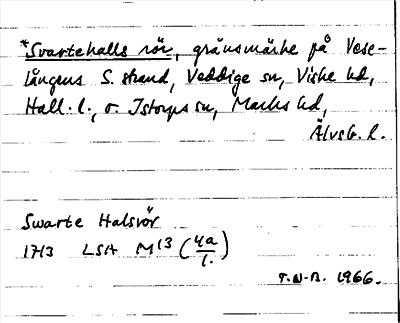 *Svartehalls rör, gränsmärke på Vese-
långens S. strand, Veddige sn, Viske hd,
Hall. l., o. Istorps sn, Marks hd,
Älvsb. l.
Swarte Halsrör
1713 LSA M13 (4a/1.)
T.N-B. 1966.